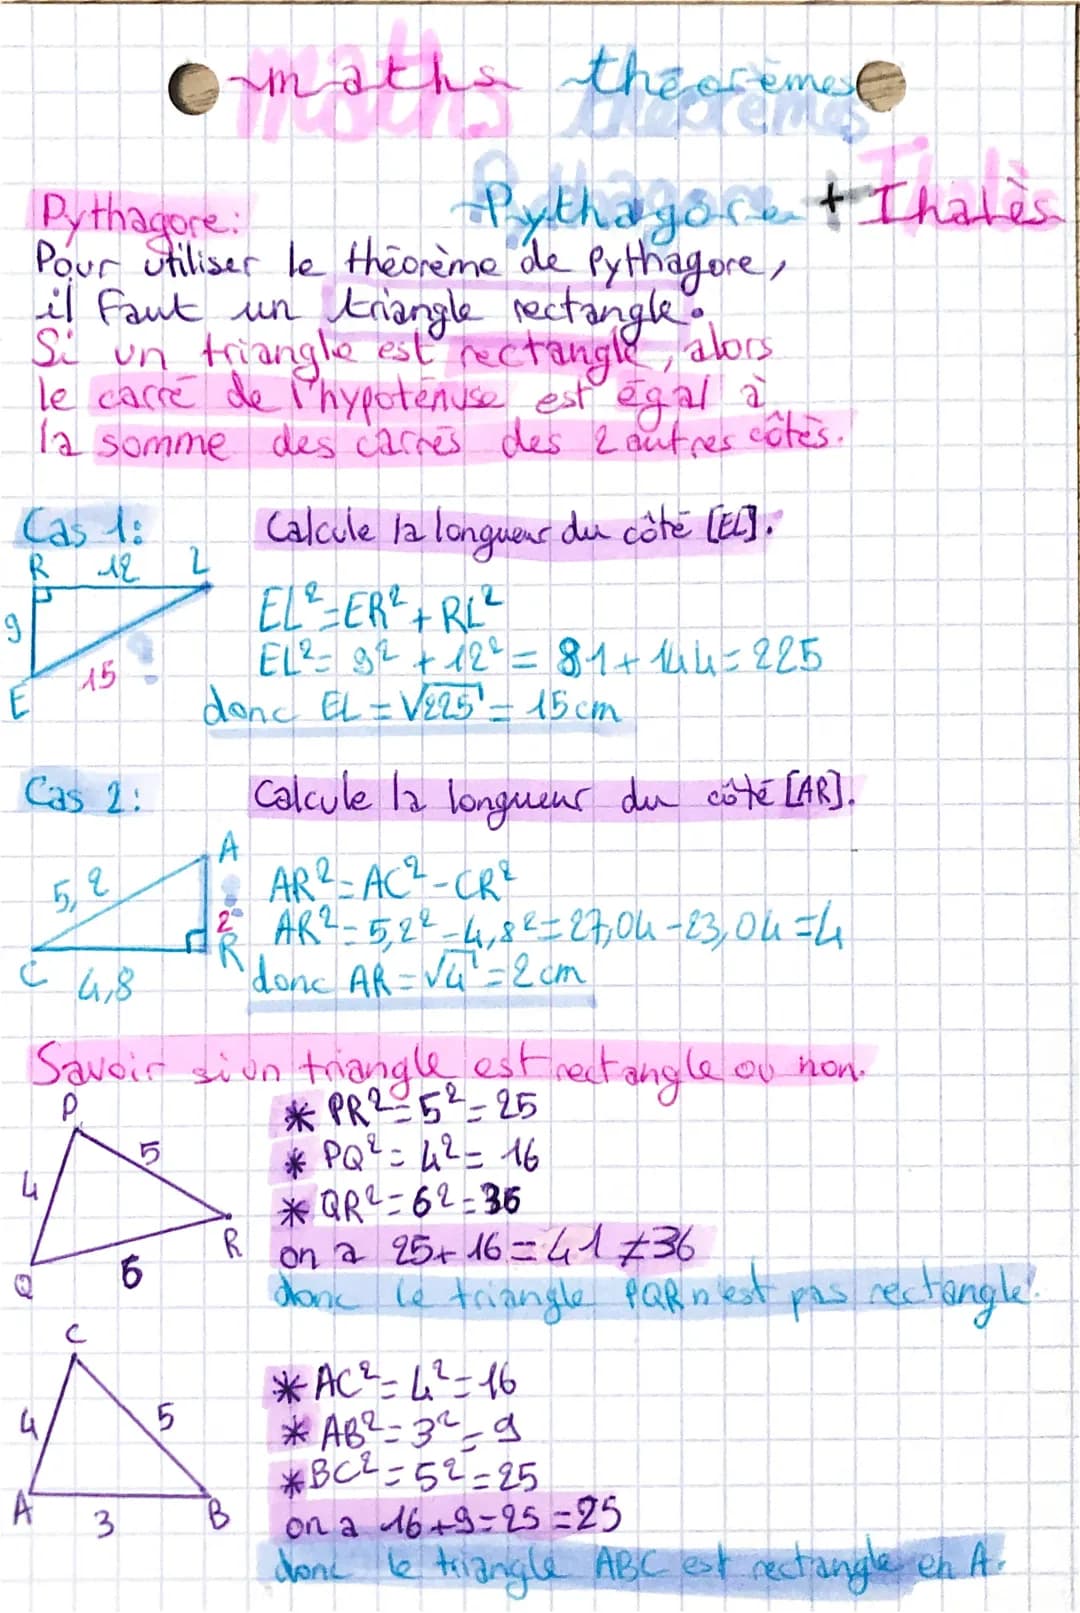 maths théorèmes
Pythagore + Thalès
Pythagore:
Pour utiliser le théorème de Pythagore,
il faut un triangle rectangle.
Si un triangle est rectangle, alors
le carré de l'hypoténuse est égal à
la somme des carrés des 2 autres côtés.
Cas 1: Calcule la longueur du côté [EL].
R 12 L
9
E 15 ?
EL²=ER²+RL²
EL²= 9² + 12² = 81+144=225
donc EL = √225 = 15cm
Cas 2: Calcule la longueur du côté [AR].
A
5,2
? 2
C 4,8 R
AR²=AC²-CR²
AR²=5,2²-4,8²=27,04-23,04=4
donc AR=√4=2cm
Savoir si un triangle est rectangle ou non.
P
4 5
Q 6 R
* PR²=5²=25
* PQ²=4²=16
* QR²=6²=36
on a 25+16=41≠36
donc le triangle PQR n'est pas rectangle.
C
4 5
A 3 B
* AC²=4²=16
* AB²=3²=9
* BC²=5²=25
on a 16+9=25=25
donc le triangle ABC est rectangle en A.